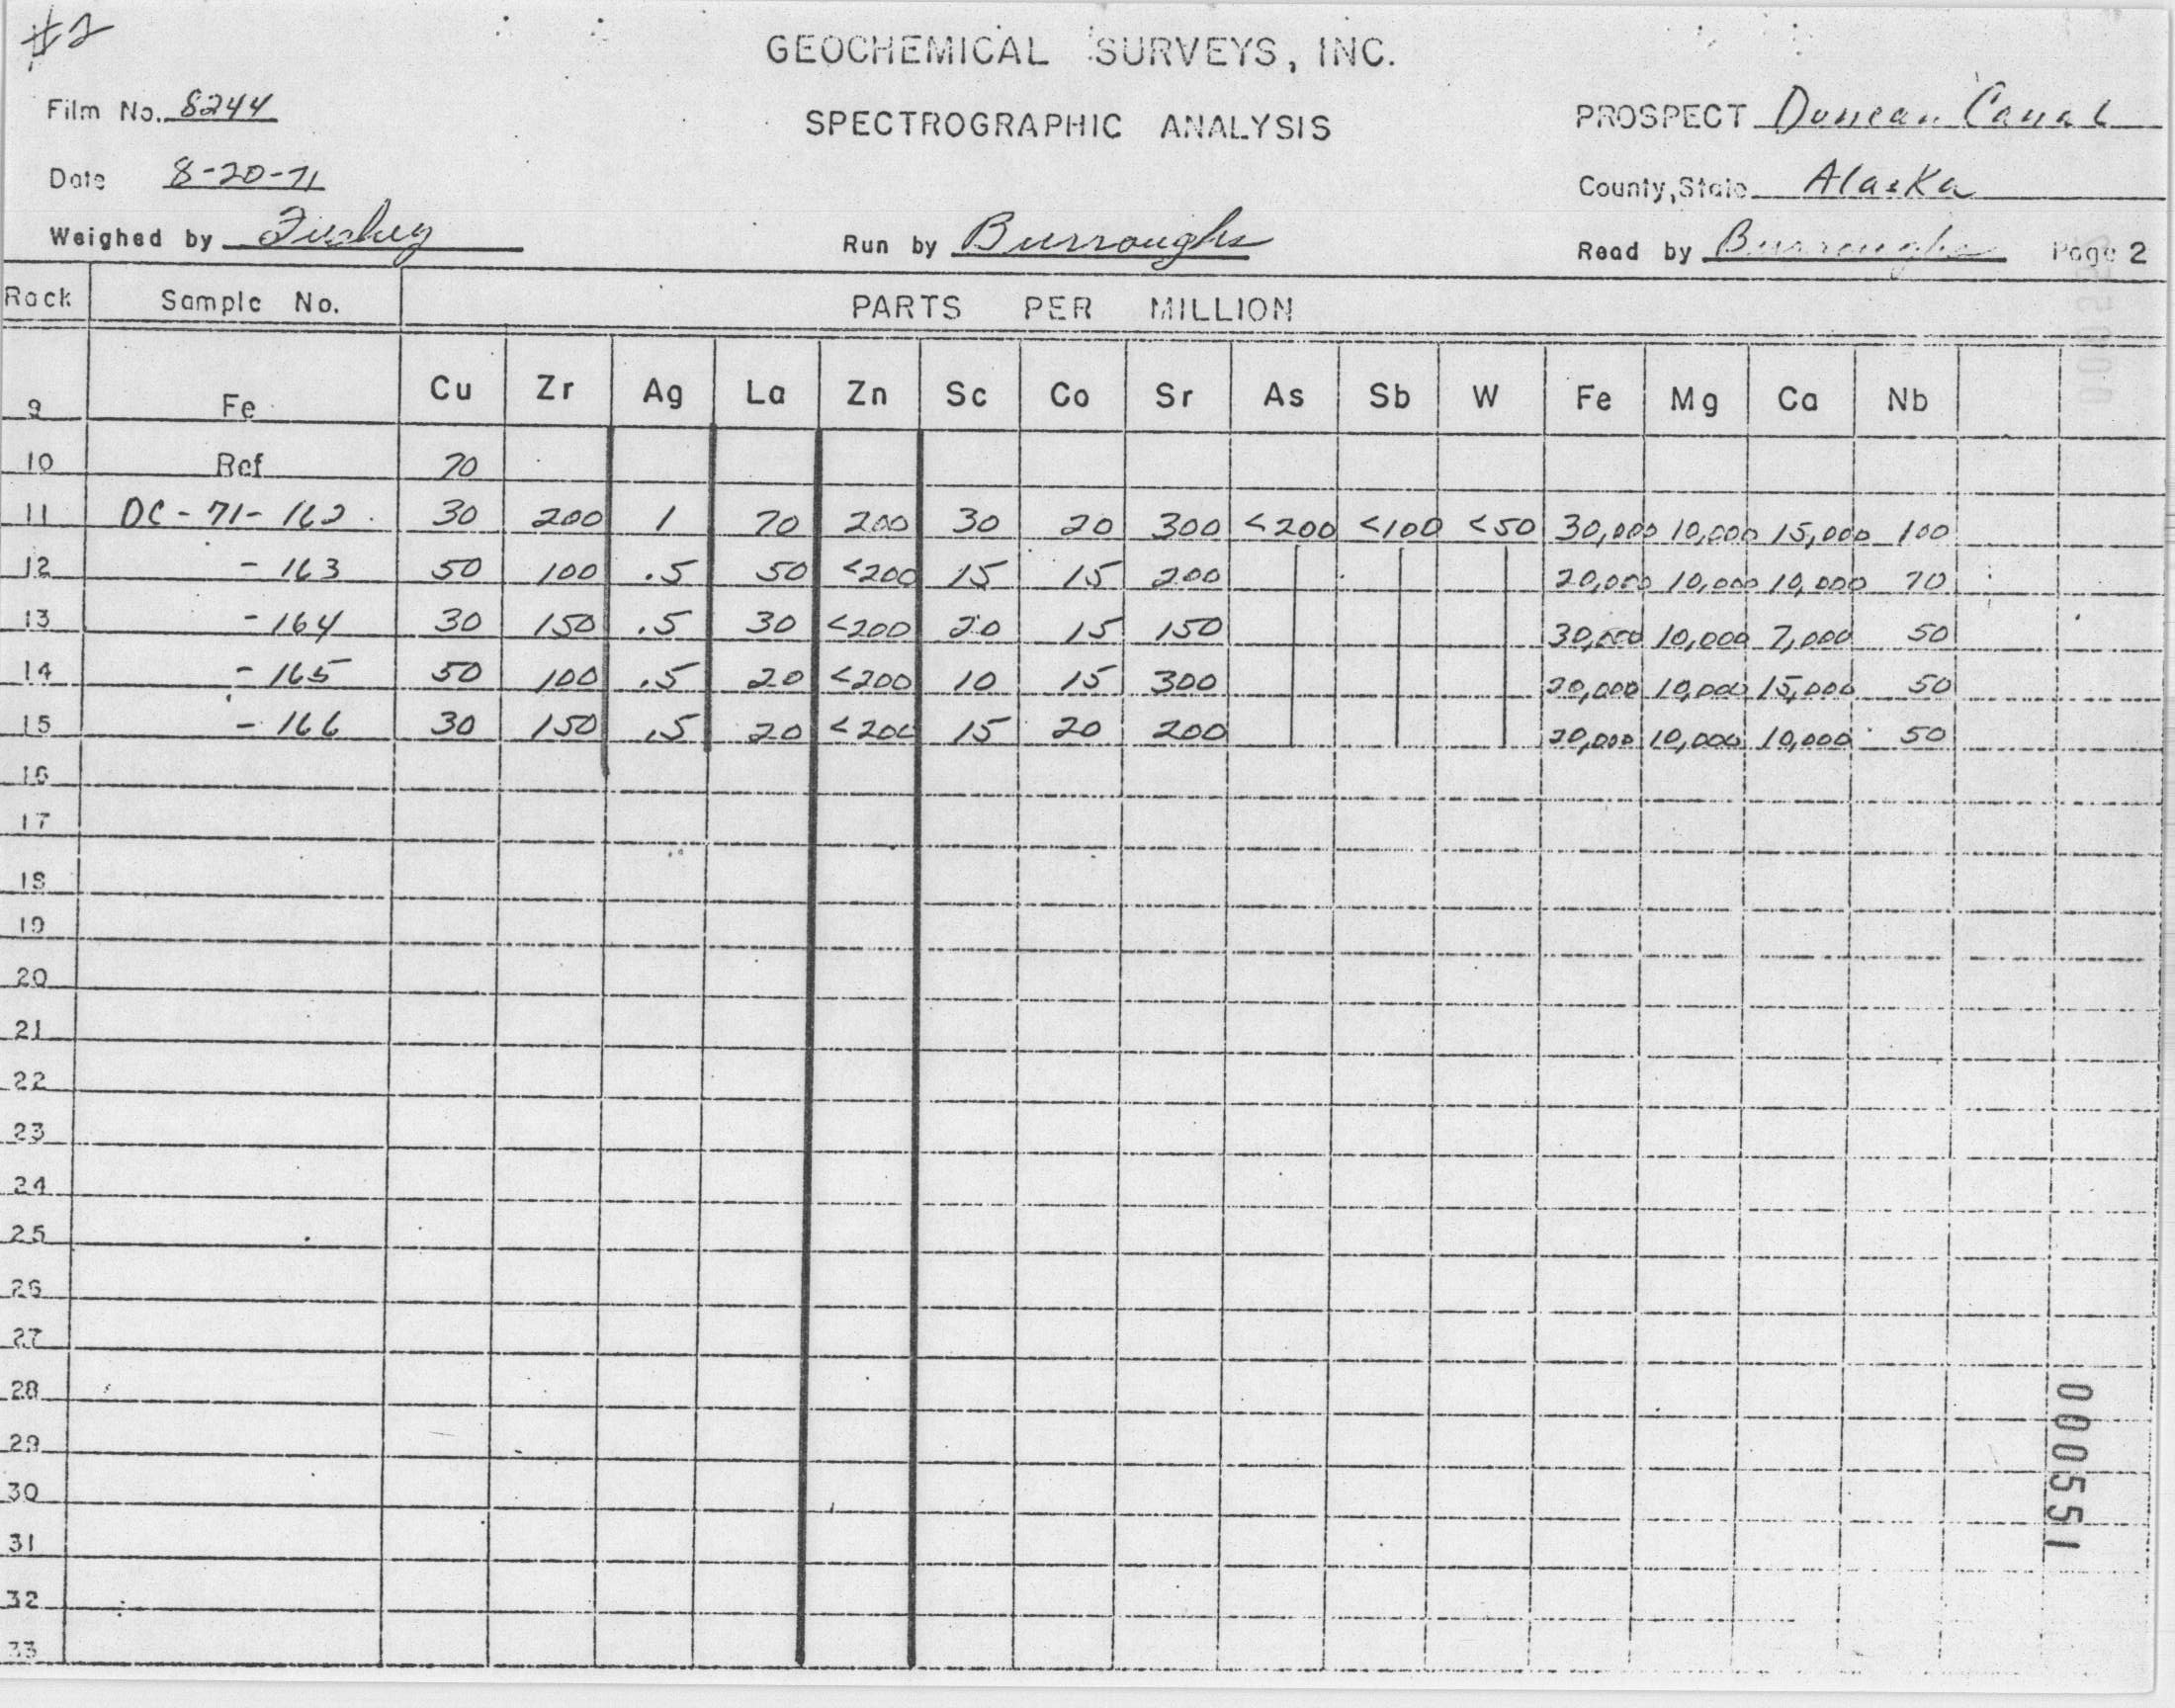 #2
GEOCHEMICAL SURVEYS, INC.
Film No. 8244
SPECTROGRAPHIC ANALYSIS
PROSPECT Duncan Canal
Date 8-20-71
County, State Alaska
Weighed by
Run by Burroughs
Read by Burroughs Page 2
Rack Sample No. PARTS PER MILLION
9 Fe Cu Zr Ag La Zn Sc Co Sr As Sb W Fe Mg Ca Nb
10 Ref 70
11 DC-71-162 30 200 1 70 200 30 20 300 <200 <100 <50 30,000 10,000 15,000 100
12 -163 50 100 .5 50 <200 15 15 200 20,000 10,000 10,000 70
13 -164 30 150 .5 30 <200 20 15 150 30,000 10,000 7,000 50
14 -165 50 100 .5 20 <200 10 15 300 20,000 10,000 15,000 50
15 -166 30 150 .5 20 <200 15 20 200 20,000 10,000 10,000 50
16
17
18
19
20
21
22
23
24
25
26
27
28
29
30
31
32
33
000551